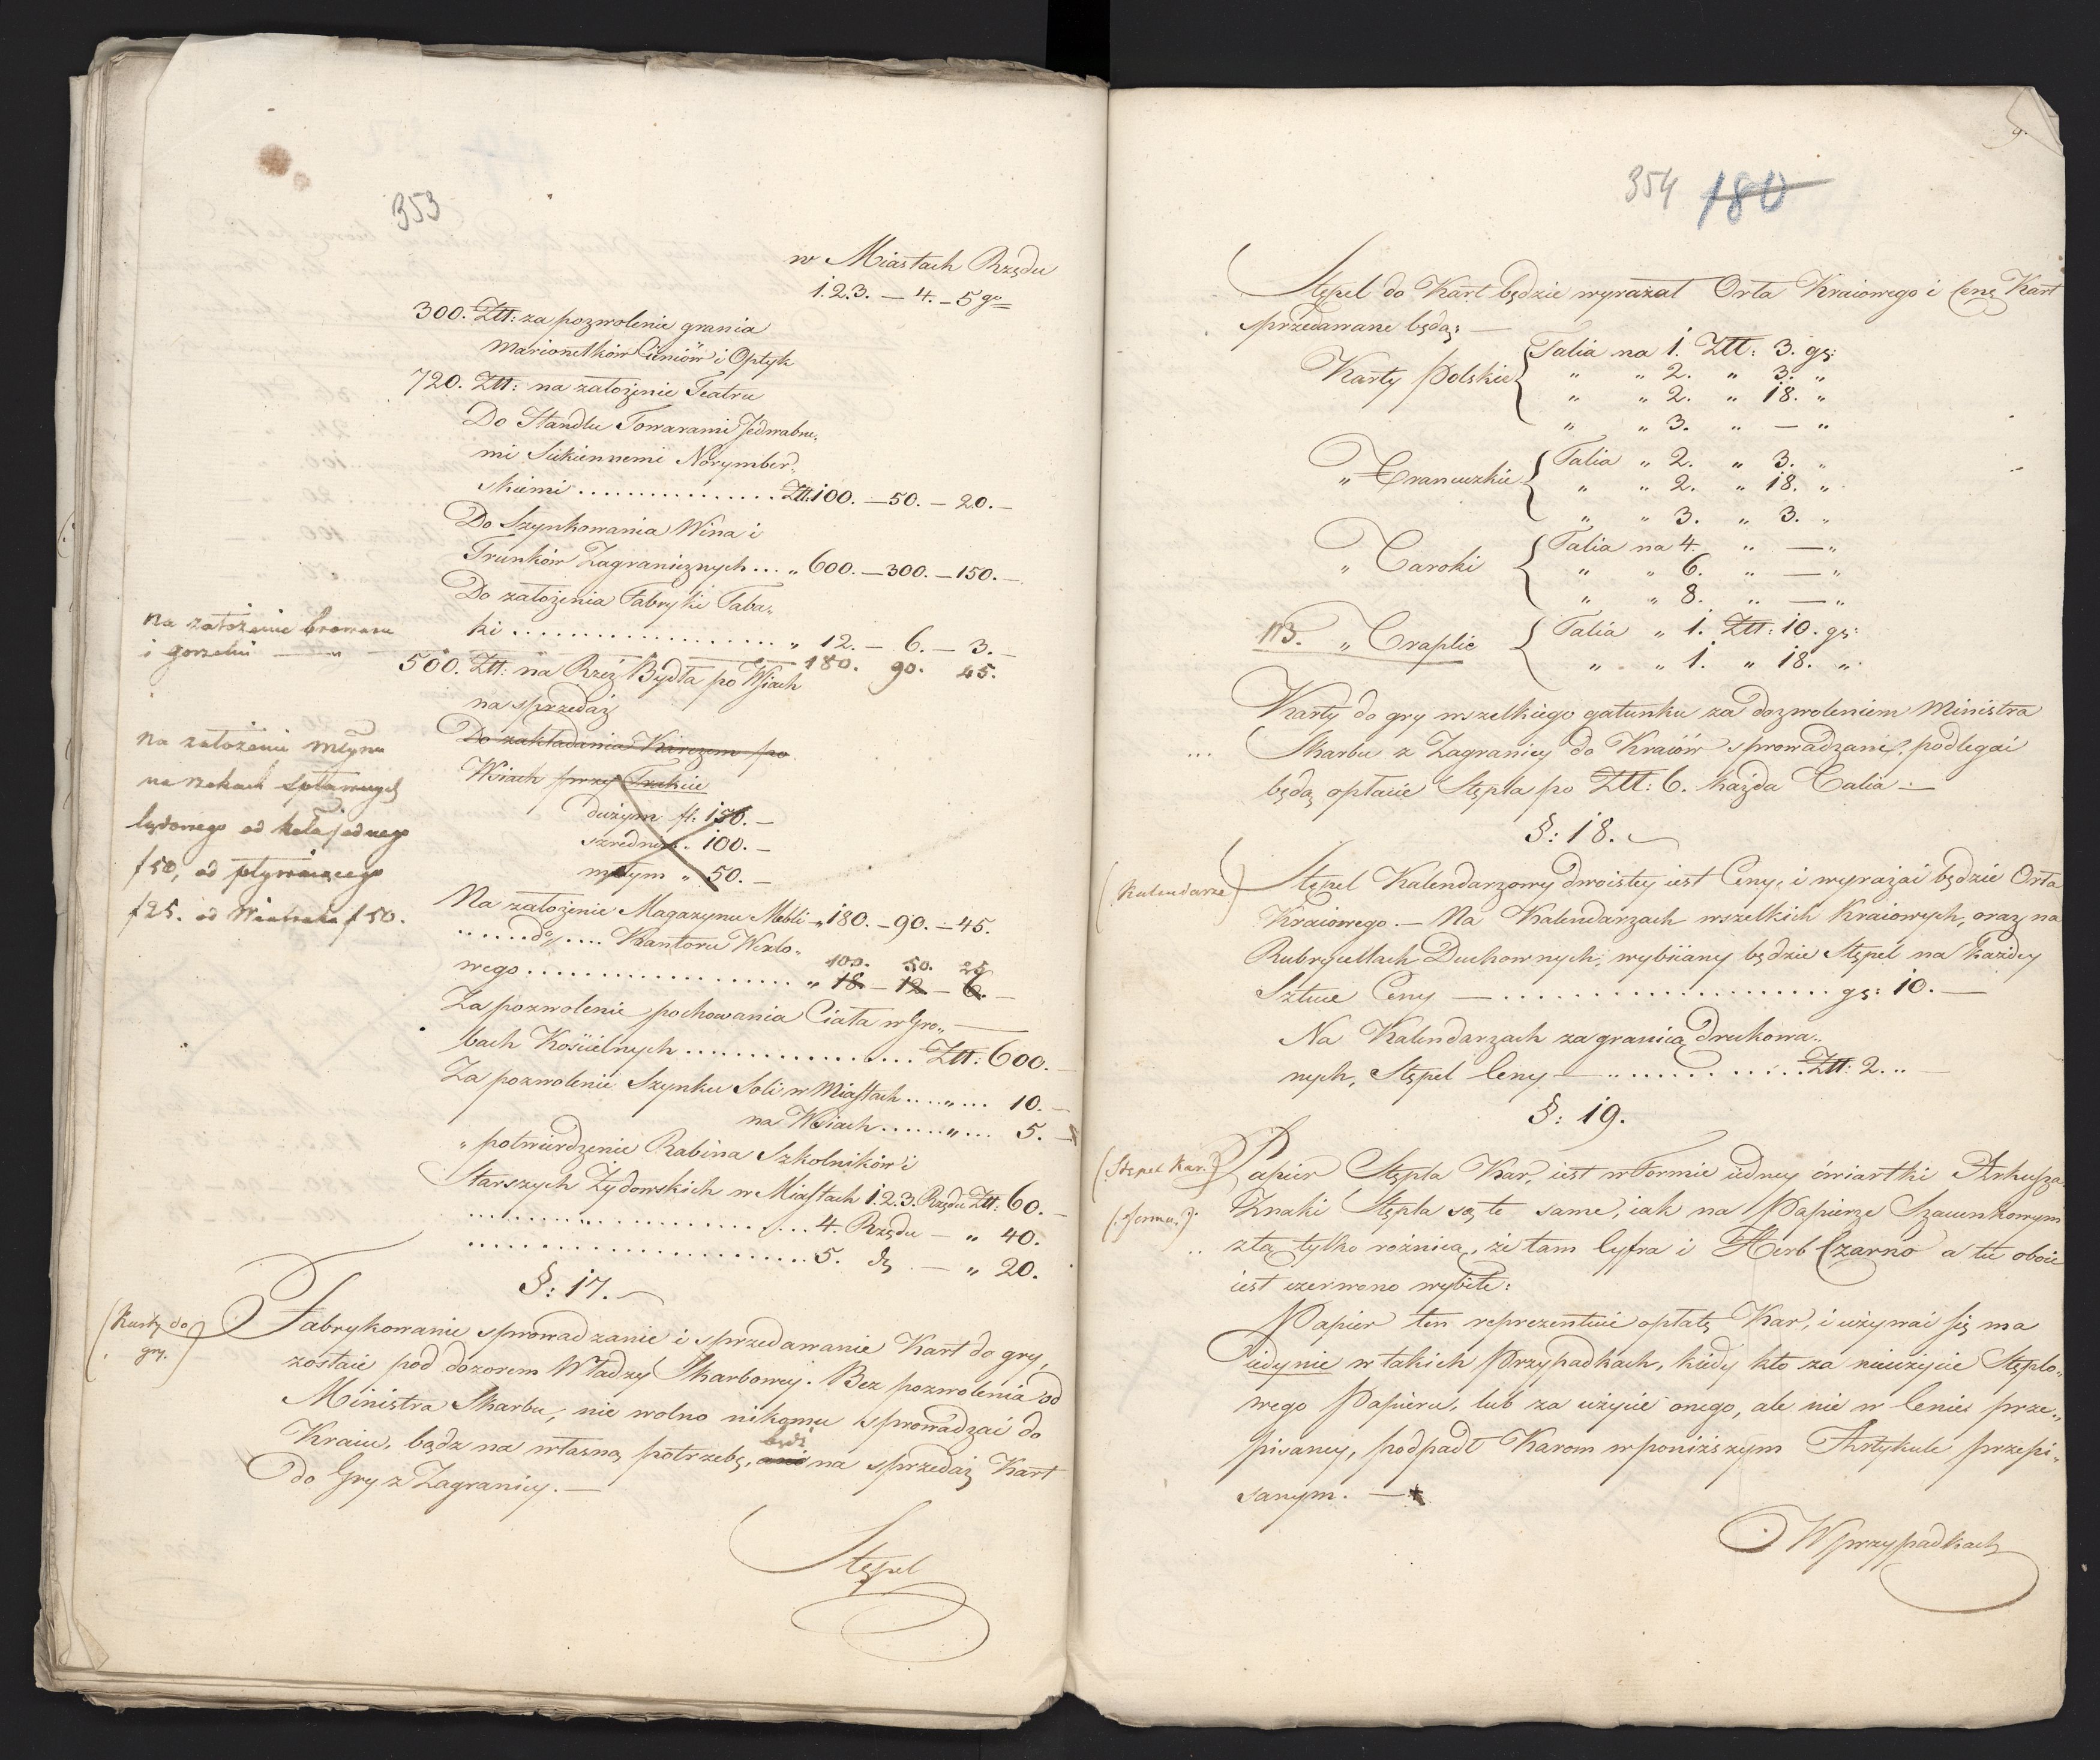 353
w Miastach Rzędu
1.2.3. — 4. — 5go
300. Złł: za pozwolenie grania
Marionetków Cieniów i Optyk
720. Złł: na założenie Teatru
Do Handlu Towarami Jedwabne„
mi Sukiennemi Norymber„
skiemi ................ Złł: 100. — 50. — 20. —
Do Szynkowania Wina i
Trunków Zagranicznych ... „ 600. — 300. — 150. —
Do założenia Fabryki Taba„
ki .................... „ 12. — 6. — 3. —
na założenie browaru
i gorzelni — „ — 180. 90. 45.
500. Złł: na Rzeź Bydła po Wsiach
na sprzedaż
Do zakładania Karczem po
Wsiach przy Trakcie
dużym fl: 150. —
szrednim „ 100. —
małym „ 50. —
na założenie młyna
na rzekach spławnych
lądowego od koła jednego
f 50, od pływaiącego
f 25. od Wiatraka f 50.
Na założenie Magazynu Mebli „ 180. — 90. — 45.
...... do .... Kantoru Wexlo„
100. 50. 25
wego .................... „ 18. — 12 — 6. —
Za pozwolenie pochowania Ciała w Gro„
bach Kościelnych ................. Złł: 600. —
Za pozwolenie Szynku Soli w Miastach .... „ ... 10. —
na Wsiach ...... „ ... 5. —
„ potwierdzenie Rabina Szkolników i
Starszych Żydowskich w Miastach 1.2.3. Rzędu Złł: 60. —
......... „ ................ 4. Rzędu — „ 40.
......................... 5. do — „ 20.
§: 17.
(Karty do
gry.)
Fabrykowanie sprowadzanie i sprzedawanie Kart do gry,
zostaie pod dozorem Władzy Skarbowey. Bez pozwolenia od
Ministra Skarbu, nie wolno nikomu sprowadzać do
bądź
Kraiu, bądz na własną potrzebę, ani na sprzedaż Kart
do Gry z Zagranicy. —
Stępel
354 180
9.
Stępel do Kart będzie wyrażał Orła Kraiowego i Cenę Kart
sprzedawane będą; —
Karty Polskie { Talia na 1. Złł: 3. gr:
„ „ 2. „ 3. „
„ „ 2. „ 18. „
„ „ 3. „ — „
„ Francuzkie { Talia „ 2. „ 3. „
„ „ 2. „ 18. „
„ „ 3. „ 3. „
„ Taroki { Talia na 4. „ — „
„ „ 6. „ — „
„ „ 8. „ — „
„ Traplie { Talia „ 1. Złł: 10. gr:
„ „ 1. „ 18. „
Karty do gry wszelkiego gatunku za dozwoleniem Ministra
Skarbu z Zagranicy do Kraiów sprowadzane, podlegać
będą opłacie Stępla po Złł: 6. każda Talia —
§: 18.
(Kalendarze)
Stępel Kalendarzowy dwoistey iest Ceny, i wyrażać będzie Orła
Kraiowego. — Na Kalendarzach wszelkich Kraiowych, oraz na
Rubrycellach Duchownych, wybiiany będzie Stępel na każdey
Sztuce Ceny — .................... gr: 10. —
Na Kalendarzach za granicą drukowa„
nych, Stępel Ceny — ............. Złł: 2. „ —
§: 19.
(Stępel Kar.)
(forma.)
Papier Stępla Kar, iest w Formie iedney ćwiartki Arkusza.
Znaki Stępla są te same, iak na Papierze Szacunkowym
z tą tylko rożnicą, że tam Cyfra i Herb Czarno a tu oboie
iest czerwono wybite:
Papier ten reprezentuie opłatę Kar, i używać się ma
iedynie w takich Przypadkach, kiedy kto za nieużycie Stęplo„
wego Papieru, lub za użycie onego, ale nie w Cenie prze„
pisaney, podpadł Karom w poniższym Artykule przepi„
sanym. —
W przypadkach